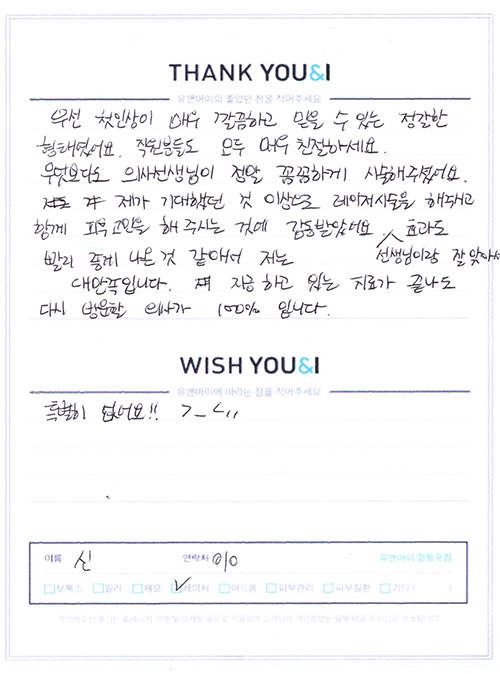 THANK YOU&I
유앤아이의 좋았던 점을 적어주세요
우선 첫인상이 매우 깔끔하고 믿을 수 있는 정갈한
형태였어요. 직원분들도 모두 매우 친절하세요.
무엇보다도 의사선생님이 정말 꼼꼼하게 시술해주셨어요.
제가 기대했던 것 이상으로 레이저시술을 해주시고
함께 피부고민을 해 주시는 것에 감동받았어요 효과도
빨리 좋게 나온 것 같아서 저는 선생님이랑 잘 맞아서
대만족입니다. 지금 하고 있는 치료가 끝나도
다시 방문할 의사가 100% 입니다.
WISH YOU&I
유앤아이에 바라는 점을 적어주세요
특별히 없어요!! >_<,,
이름 신 연락처 010 유앤아이 영등포점
보톡스 필러 제모 레이저 여드름 피부관리 피부질환 기타 ( )